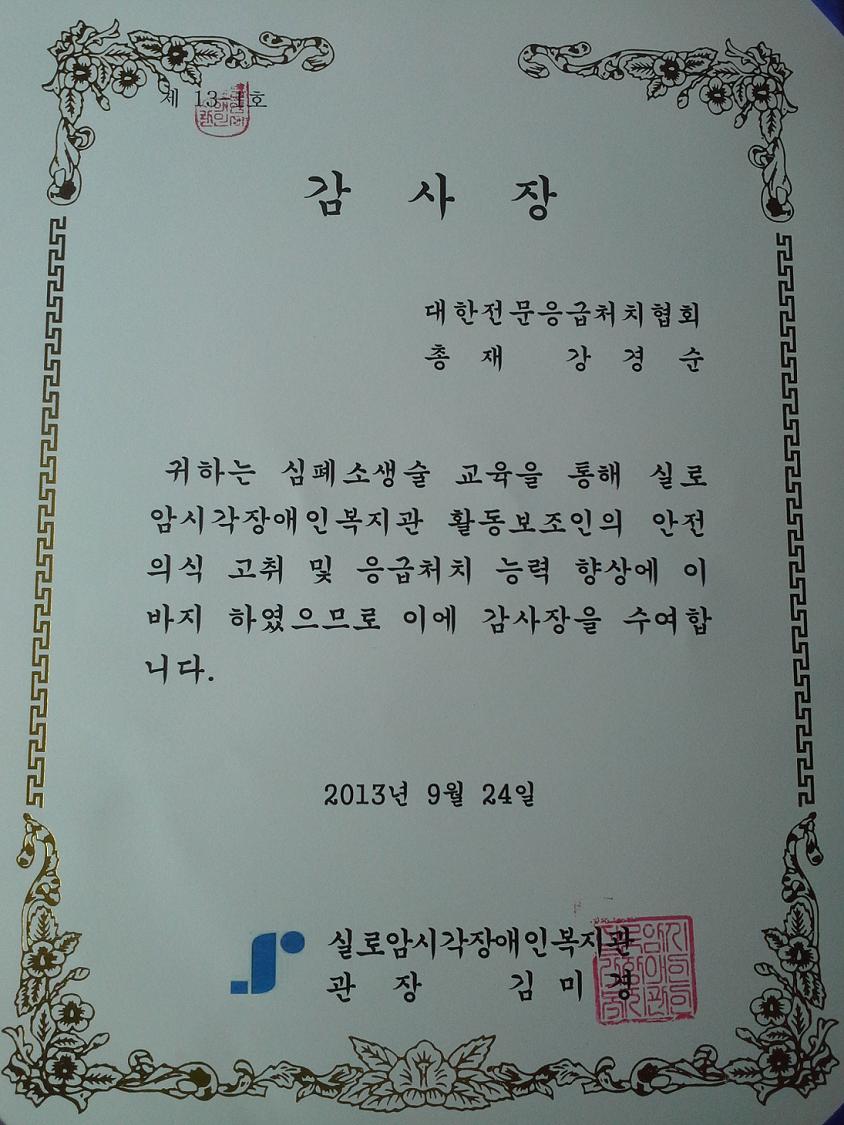 제 13-1호
감 사 장
대한전문응급처치협회
총 재 강 경 순
귀하는 심폐소생술 교육을 통해 실로
암시각장애인복지관 활동보조인의 안전
의식 고취 및 응급처치 능력 향상에 이
바지 하였으므로 이에 감사장을 수여합
니다.
2013년 9월 24일
실로암시각장애인복지관
관 장 김 미 경